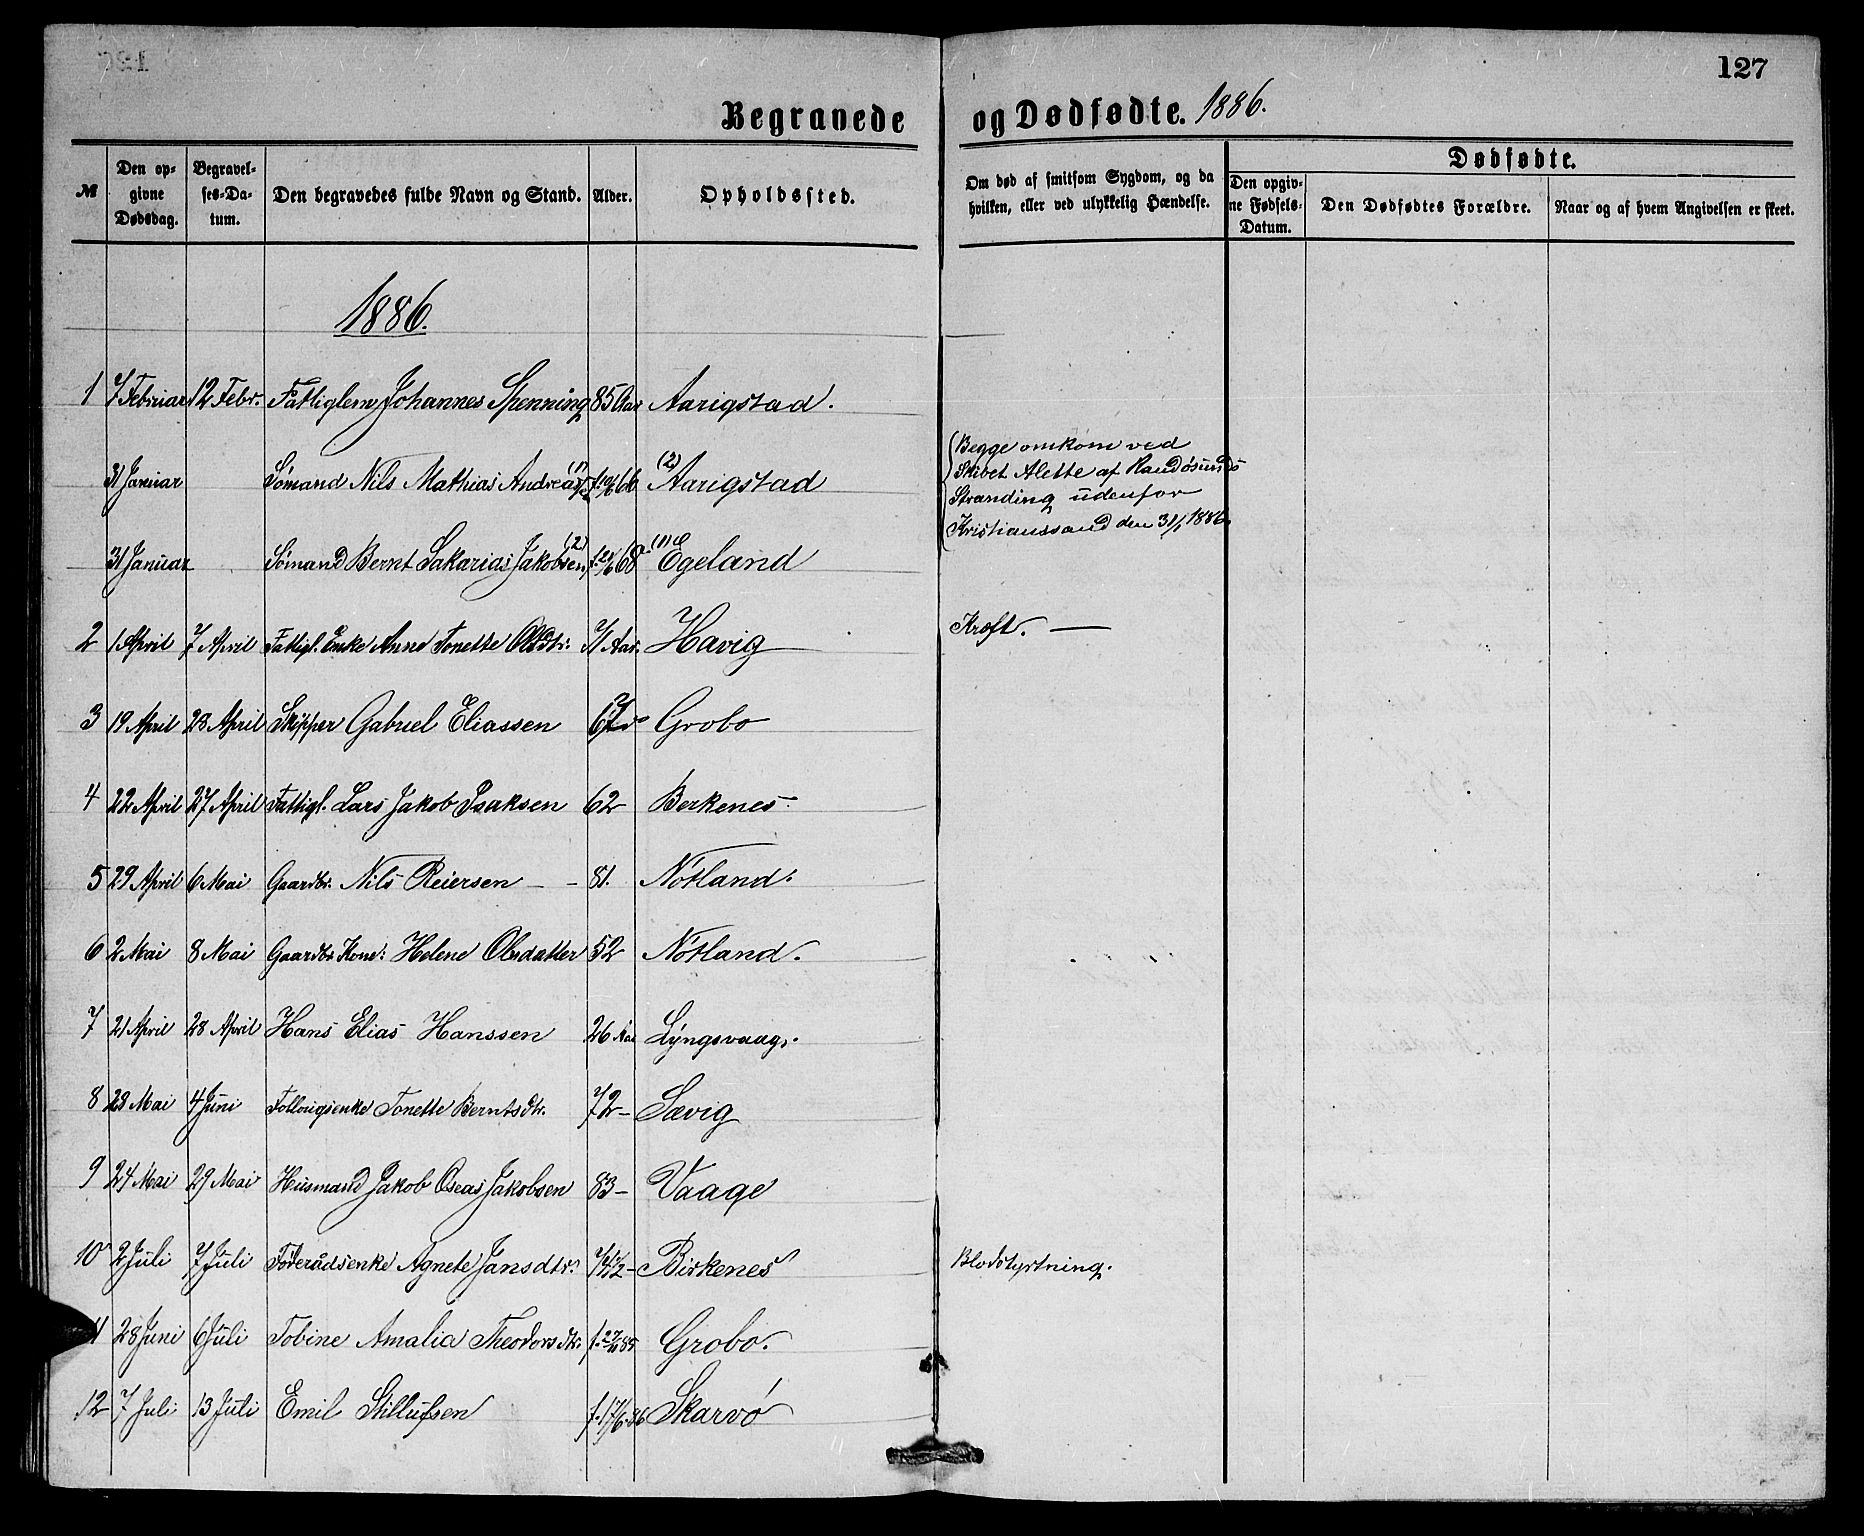 127
Begravede og Dødfødte. 1886.
№ Den opgivne Dødsdag. Begravelses-Datum. Den begravedes fulde Navn og Stand. Alder. Opholdssted. Om død af smitsom Sygdom, og da hvilken, eller ved ulykkelig Hændelse. Dødfødte. Den opgivne Fødsels-Datum. Den Dødfødtes Forældre. Naar og af hvem Angivelsen er skeet.
1886.
1 7 Februar 12 Febr. Fattiglem Johannes Spenning 85 Aar Aarigstad.
31 Januar Sømand Nils Mathias (1) 66 (2) Aarigstad
Begge omkom ved
Skibet Alette af Randøsunds
Stranding udenfor
Kristianssand den 31/1 1886.
31 Januar Sømand Bernt Sakarias Jakobsen (2) 68 (1) Egeland
2 1 April 7 April Fattigl. Enke Anne Tonette Olsdtr. 71 Aar. Havig Kræft. —
3 19 April 23 April Skipper Gabriel Eliassen Grobo
4 22 April 27 April Fattigl. Lars Jakob Isaksen 62 Berkenes
5 29 April 6 Mai Gaardbr. Nils Reiersen - - 81. Nøtland.
6 2 Mai 8 Mai Gaardbr. Kone: Helene Olsdatter 52 Nøtland.
7 21 April 28 April Hans Elias Hanssen 26 Aar Lyngsvaag.
8 28 Mai 4 Juni Tonette Berntsdtr. 72 - Sævig
9 24 Mai 29 Mai Husmand Jakob Oseas Jakobsen 83 - Vaage
10 2 Juli 7 Juli Føderådsenke Agnete Jansdtr. Birkenes Blodstyrtning.
11 28 Juni 6 Juli Tobine Amalia Theodorsdtr. Grobo.
12 7 Juli 13 Juli Emil Stillufsen f. 17/6.86 Skarvø